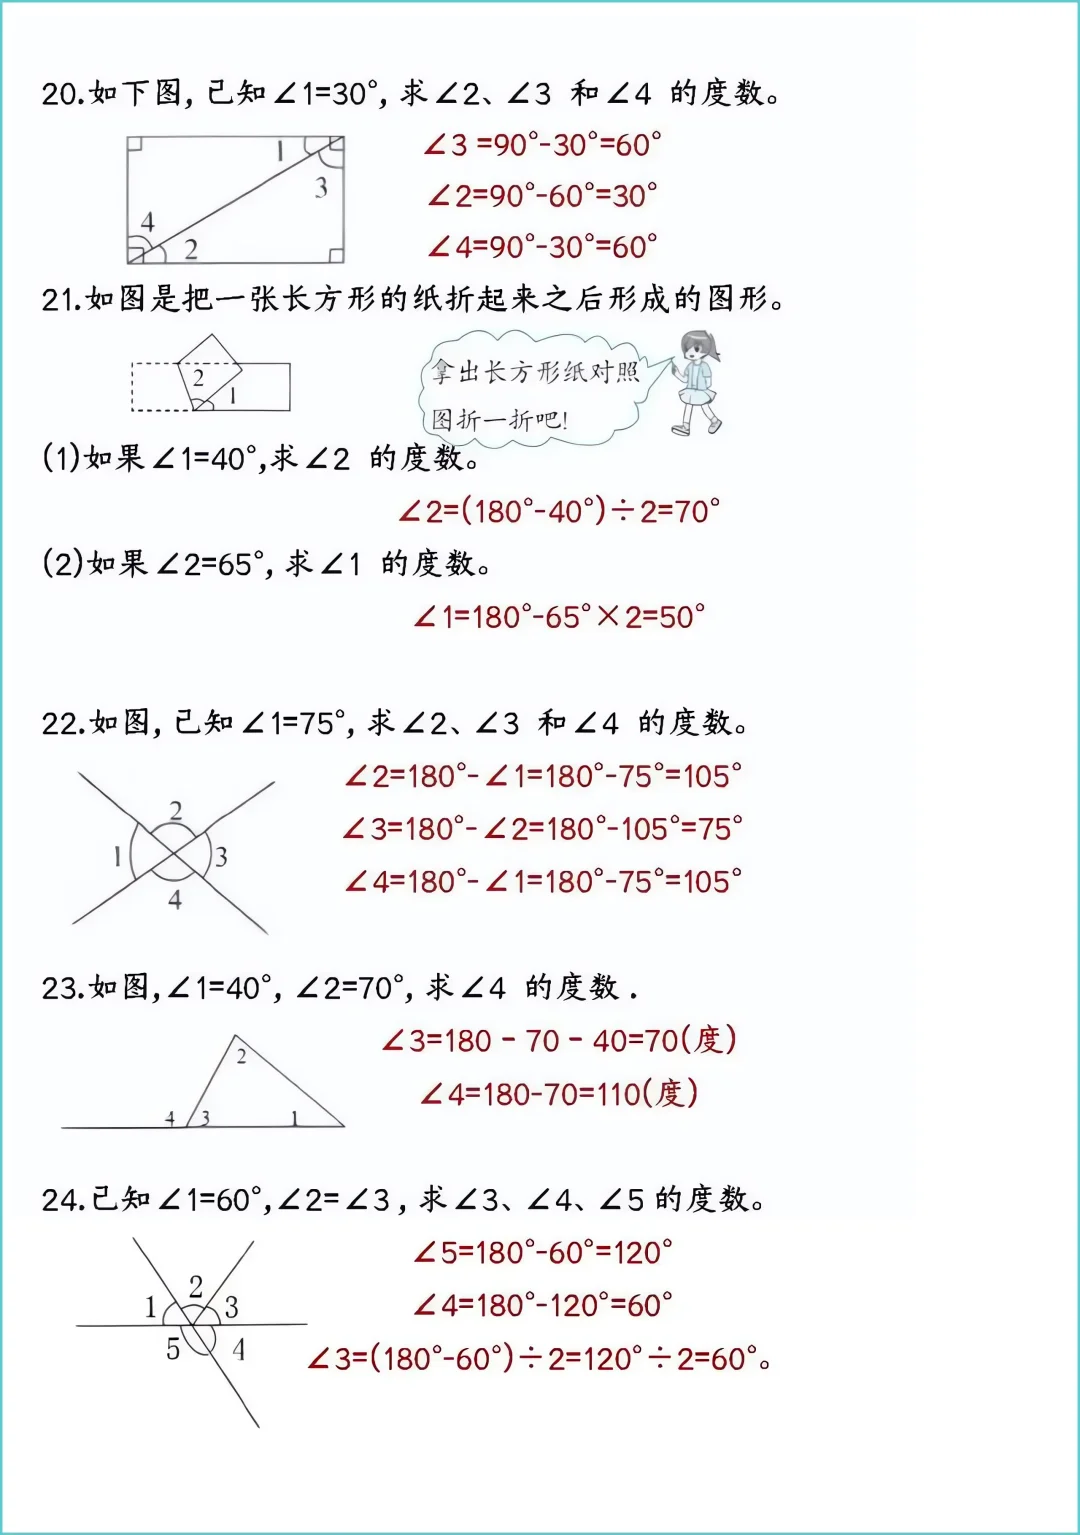 20.如下图,已知∠1=30°,求∠2、∠3 和∠4 的度数。
∠3 =90°-30°=60°
∠2=90°-60°=30°
∠4=90°-30°=60°
1
3
4
2
21.如图是把一张长方形的纸折起来之后形成的图形。
2
1
拿出长方形纸对照
图折一折吧!
(1)如果∠1=40°,求∠2 的度数。
∠2=(180°-40°)÷2=70°
(2)如果∠2=65°,求∠1 的度数。
∠1=180°-65°×2=50°
22.如图,已知∠1=75°,求∠2、∠3 和∠4 的度数。
∠2=180°-∠1=180°-75°=105°
∠3=180°-∠2=180°-105°=75°
∠4=180°-∠1=180°-75°=105°
2
1 3
4
23.如图,∠1=40°,∠2=70°,求∠4 的度数.
∠3=180-70-40=70(度)
∠4=180-70=110(度)
2
4 3 1
24.已知∠1=60°,∠2=∠3,求∠3、∠4、∠5的度数。
∠5=180°-60°=120°
∠4=180°-120°=60°
∠3=(180°-60°)÷2=120°÷2=60°。
2
1 3
5 4